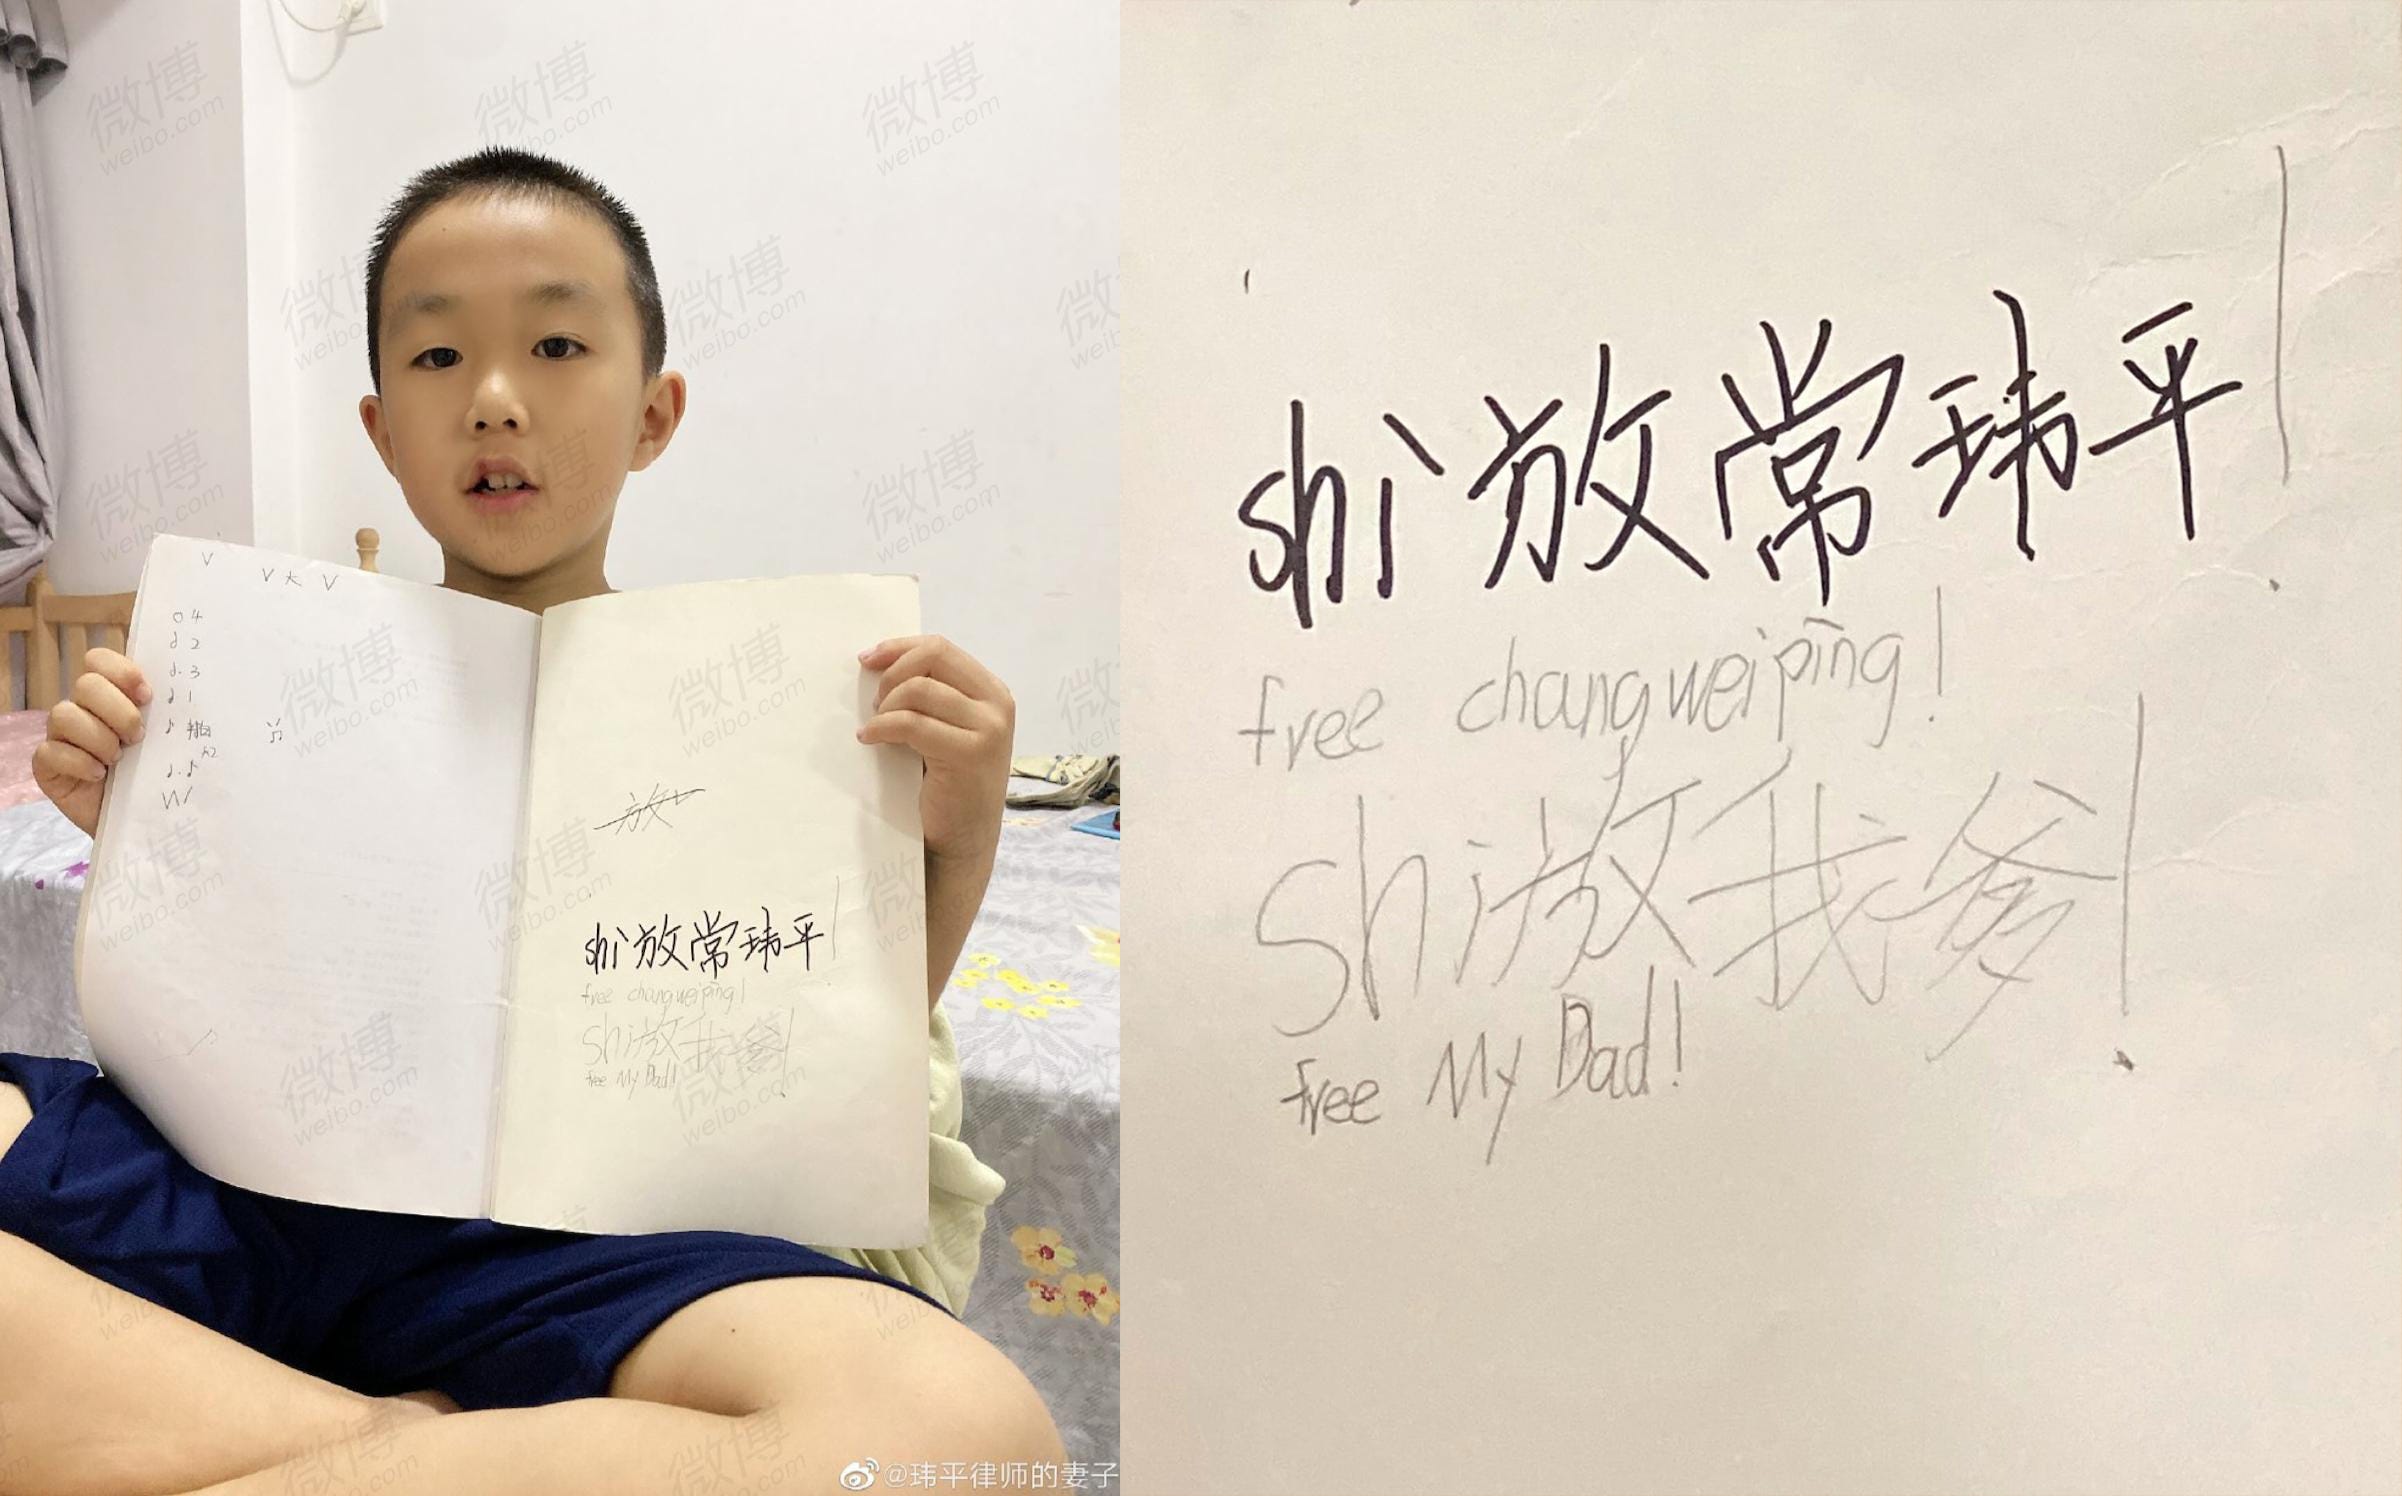 V
V大V
04
d 2
d. 3
d 1
放
shi放常玮平!
free changweiping!
shi放我爹!
free My Dad!
@玮平律师的妻子
shi放常玮平!
free changweipīng!
shi放我爹!
free My Dad!
微博
weibo.com